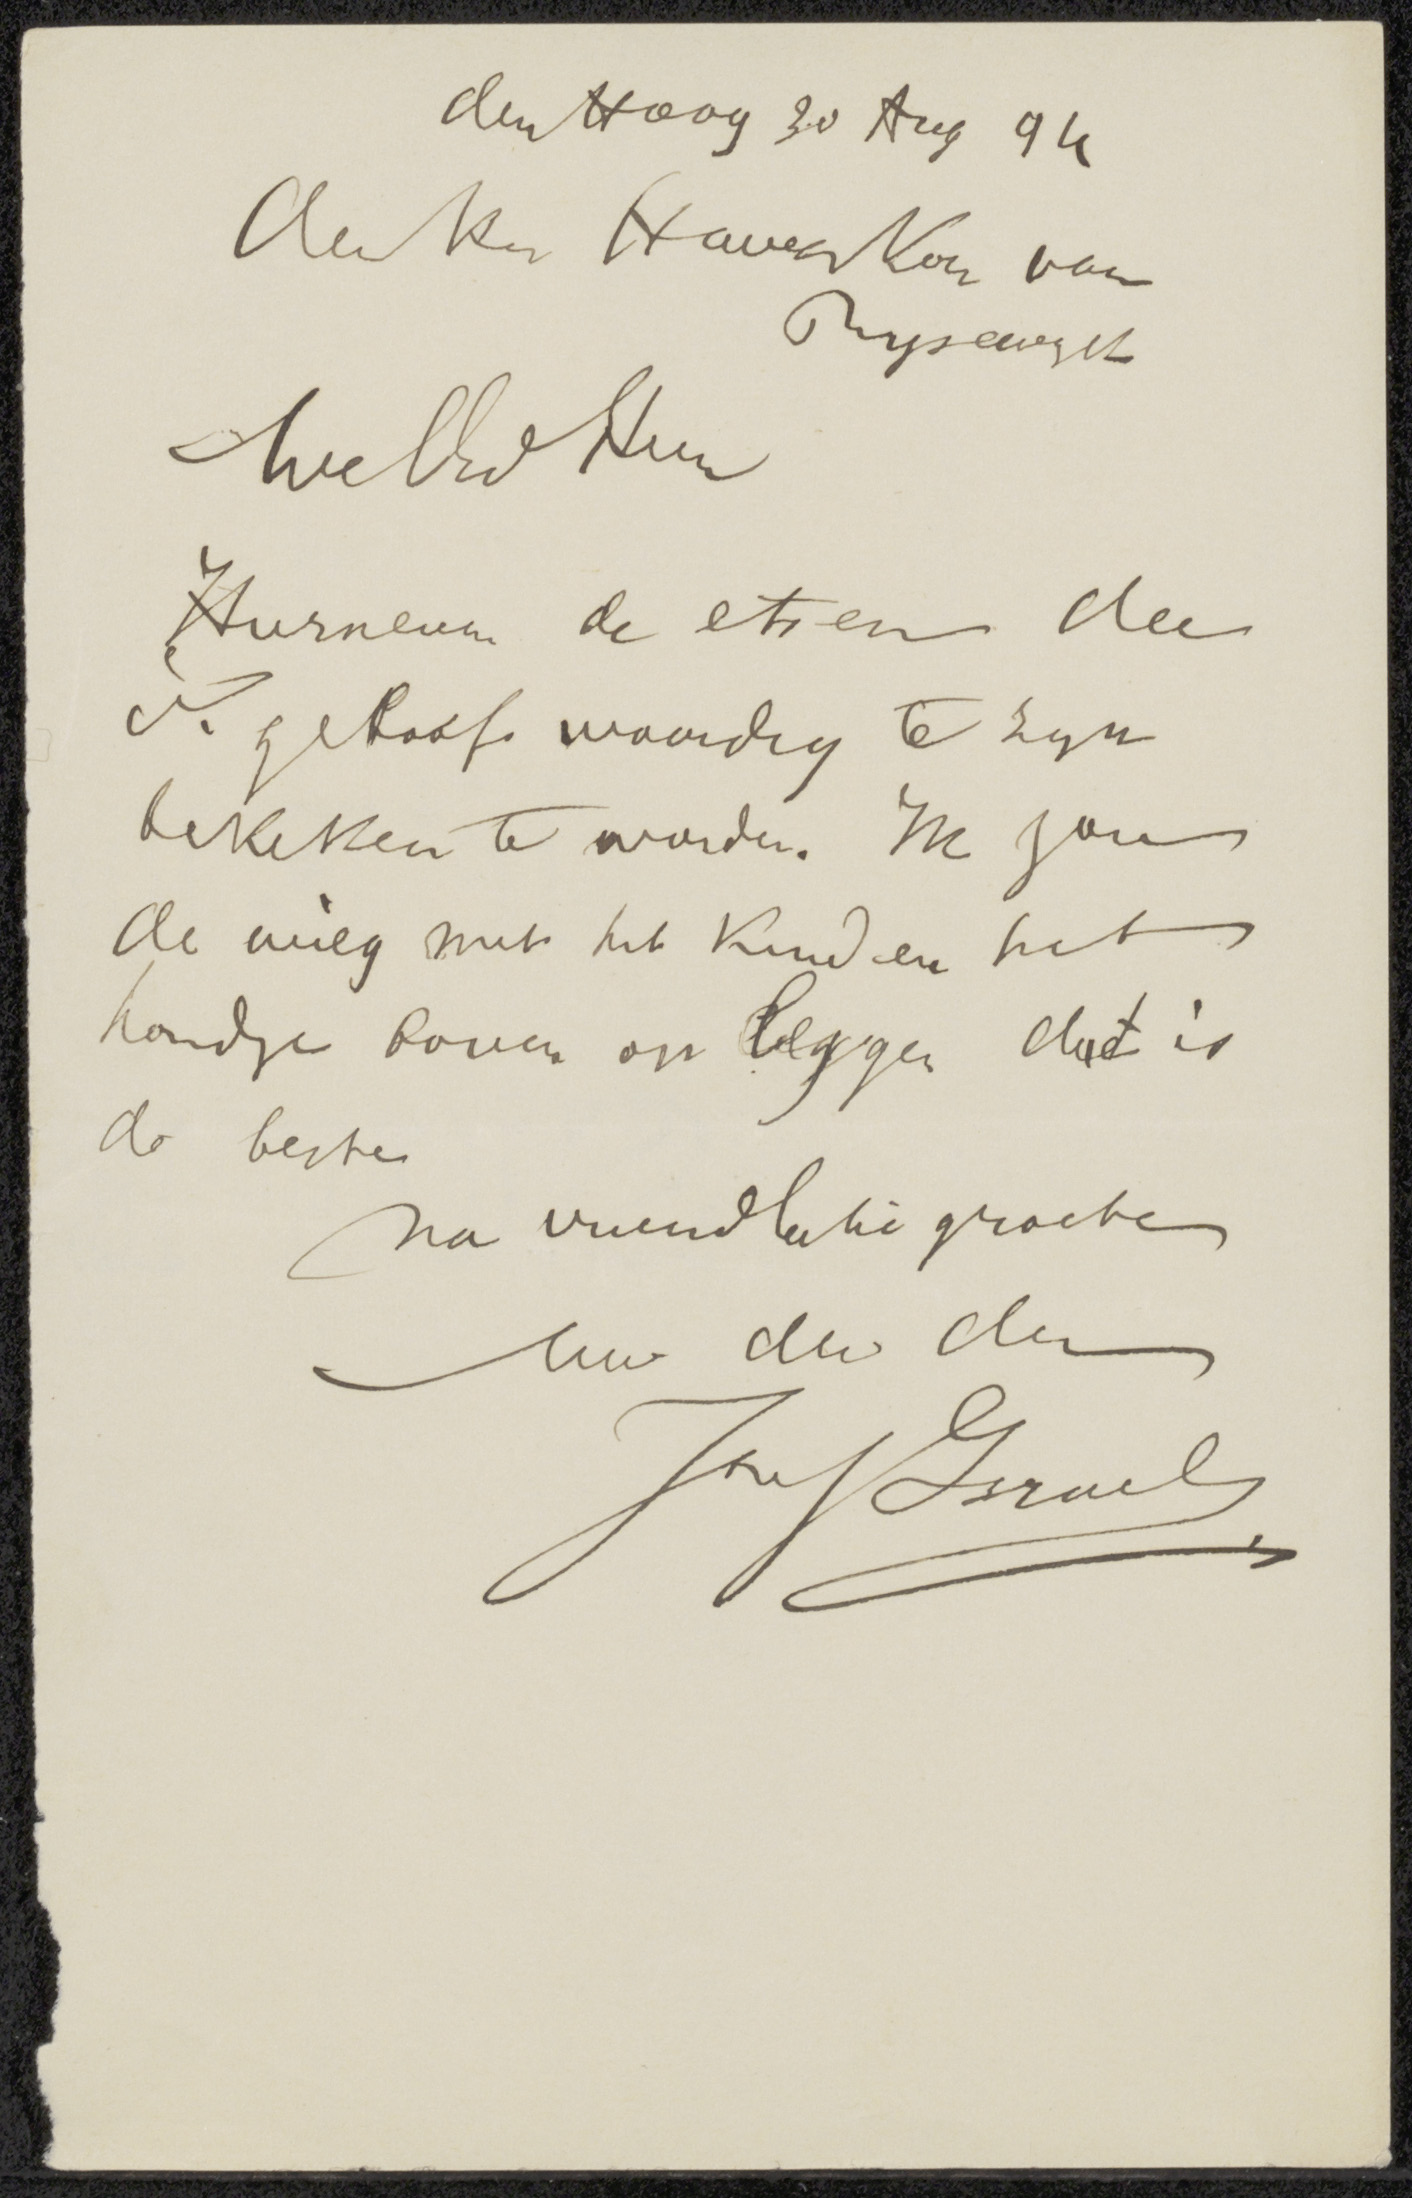 den Haag 30 Aug 94
den Hr Haverkorn van
Rysewyk
WelEd Heer
Hierneven de etsen die
ik geloof waardig te zyn
bekeken te worden. Ik zou
de wieg met het kind en het
hondje boven op leggen dat is
de beste
na vriendelyke groete
Uw dw dr
Jozef Israels